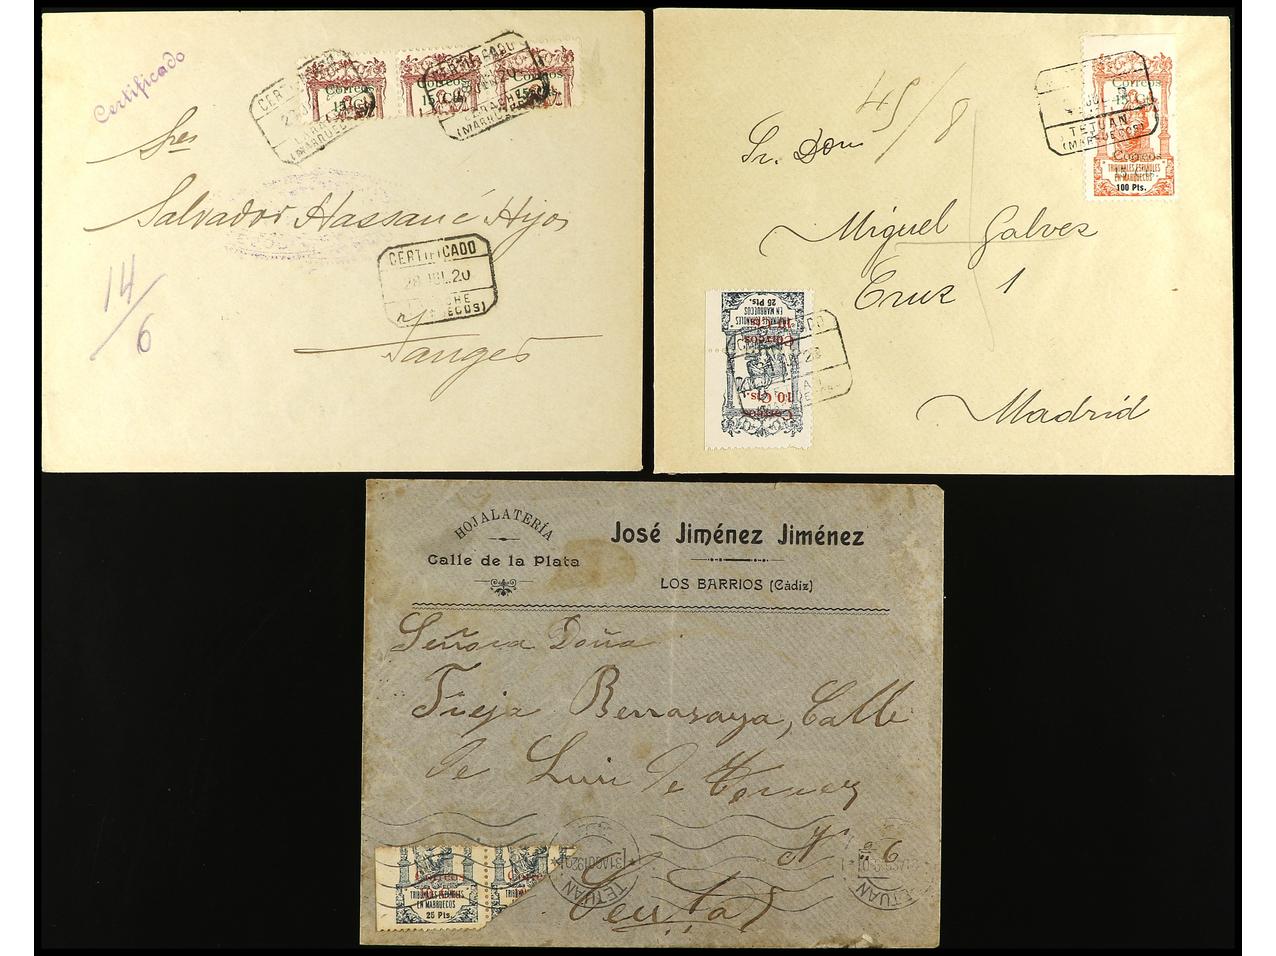 Certificado
Correos
Correos
Correos
15 Cts.
15 Cts.
CERTIFICADO
(MARRUECOS)
CERTIFICADO
(MARRUECOS)
Sres
Salvador Hassan é Hijos
14/6
CERTIFICADO
28 JUL. 20
Tanger
45/8
Sr. Don
Miguel Galvez
Cruz 1
Madrid
Correos
15 Cts.
JUL
TETUAN
(MARRUECOS)
Correos
TRIBUNALES ESPAÑOLES
EN MARRUECOS
100 Pts.
25 Pts.
EN MARRUECOS
TRIBUNALES ESPAÑOLES
10 Cts.
Correos
10 Cts.
Correos
HOJALATERÍA
Calle de la Plata
José Jiménez Jiménez
LOS BARRIOS (Cádiz)
Señora Doña
Calle
de Luis de
Nº 6
Ceuta
Correos
TRIBUNALES ESPAÑOLES
EN MARRUECOS
25 Pts.
31AGO1920
TETUAN
TETUAN